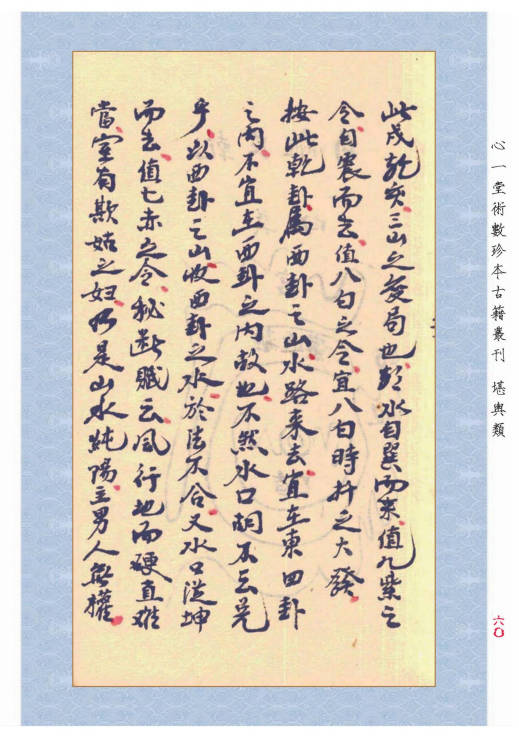 此戌乾亥三山之変局也彭水自巽而来值九紫之
令自震而去值八白之令宜八白時扦之大發
按此乾卦屬西卦之山水路来去宜在東四卦
之内不宜在西卦之内故也不然水口訶不云兑
乎以西卦之山收西卦之水於法不合又水口從坤
而去值七赤之令秘断賦云風行地而硬直难
當室有欺姑之妇仍是山水純陽主男人無權
心一堂術數珍本古籍叢刊 堪輿類
六〇